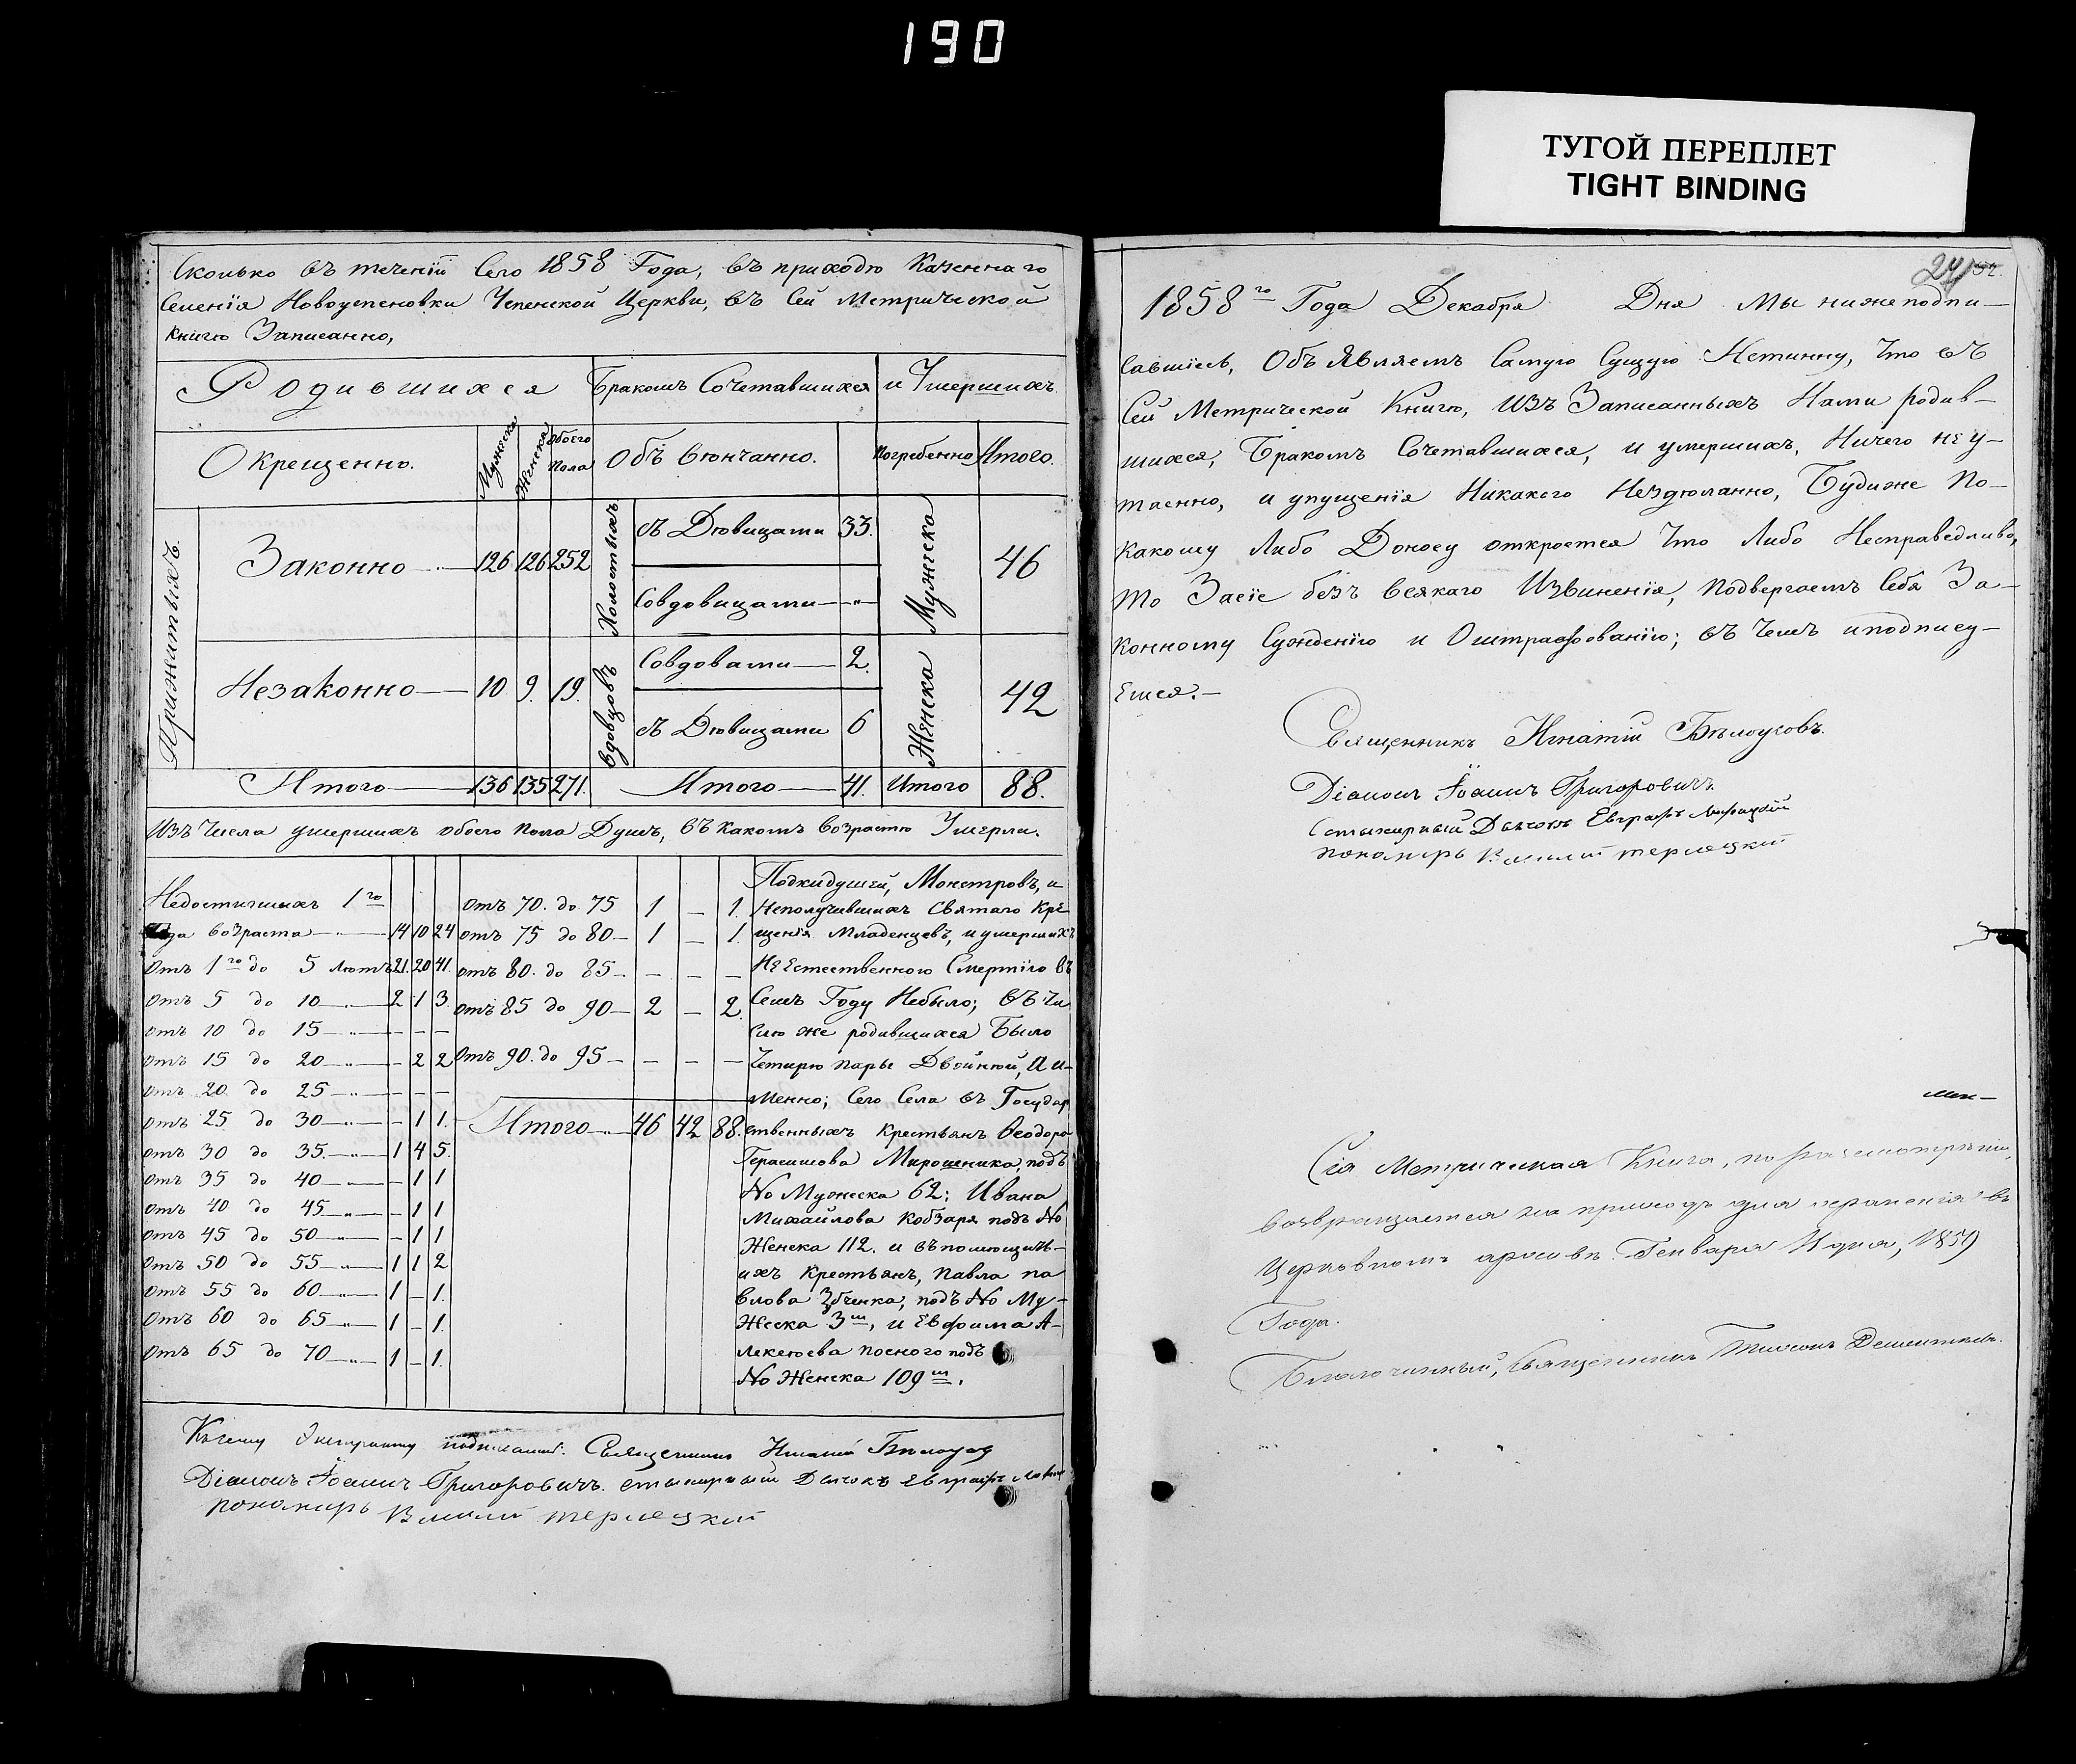 190
ТУГОЙ ПЕРЕПЛЕТ
TIGHT BINDING
Сколько въ теченіи Сего 1858 Года, въ приходѣ Казеннаго
Селенія Новоуспеновки Успенской Церкви, въ Сей Метрической
книгѣ Записанно,
Родившихся Бракомъ Сочетавшихся и Умершихъ.
Окрещенно. Мужеска Женска Обоего Пола Объ вѣнчанно. Погребенно Итого.
Прижитыхъ
Законно 126 126 252 Холостыхъ съ Дѣвицами 33. Мужеска 46
Совдовицами —"—
Незаконно 10 9. 19. Вдовцовъ Совдовами 2. Женска 42
съ Дѣвицами 6
Итого 136 135 271. Итого 41. Итого 88.
Изъ Числа умершихъ обоего пола Душъ, въ какомъ возрастѣ Умерли.
Недостигшихъ 1го
Года возраста 14 10 24
Отъ 1го до 5 Лѣтъ 21. 20 41.
Отъ 5 до 10 2 1 3.
Отъ 10 до 15 — — —
Отъ 15 до 20 — 2 2
Отъ 20 до 25 — — —
Отъ 25 до 30 — 1 1.
Отъ 30 до 35. 1 4 5.
Отъ 35 до 40 — 1 1
Отъ 40 до 45 — 1 1
Отъ 45 до 50 — 1 1
Отъ 50 до 55 1 1 2
Отъ 55 до 60 1 — 1.
Отъ 60 до 65 1 — 1.
Отъ 65 до 70 1 — 1.
Отъ 70. до 75 1 — 1.
Отъ 75 до 80 1 — 1.
Отъ 80. до 85 — — —
Отъ 85 до 90 2 — 2.
Отъ 90. до 95 — — —
Итого 46 42 88.
Подкидушей, Монстровъ, и
Неполучившихъ Святаго Кре
щенія Младенцевъ, и умершихъ
НеЕстественного Смертію въ
Семъ Году Небыло; въ Чи
слѣ же родившихся Было
Четырѣ пары Двойнѣй, А и-
Менно; Сего Села въ Государ
ственныхъ крестьянъ Ѳеодора
Герасимова Мирошника, подъ
No Мужеска 62: Ивана
Михайлова Кобзаря подъ No
Женска 112. и въ помѣщичь-
ихъ Крестьянъ, Павла па
влова, подъ No Му-
Жеска 3м, и Евфима А-
лексѣева Посного подъ
No Женска 109м.
Къ сему Экстракту подписались: Священникъ Игнатій Бѣлоусовъ
Діаконъ Іоаннъ Григоровичъ. стихирный Дьячокъ Евграфъ
пономарь Василій терлецкій
24
1858го Года Декабря Дня Мы нижеподпи—
Савшіесь, Объ Являемъ Самую Сущую Истинну, Что въ
Сей Метрической Книгѣ, Изъ Записанныхъ Нами родив—
шихся, Бракомъ Сочетавшихся, и умершихъ, Ничего неу—
таенно, и упущенія Никакого Нездѣланно, Будиже По—
какому Либо Доносу откроется Что Либо Несправедливо,
то Засіе безъ всякаго Извиненія, подвергаемъ Себя За—
конному Сужденію и Оштрафованію; въ Чемъ и подпису—
Емся.—
Священникъ Игнатій Бѣлоусовъ.
Діаконъ Іоаннъ Григоровичъ.
Стихирный Дьячокъ Евграфъ
пономарь Василій терлецкій
Сія Метрическая Книга, по разсмотрѣніи,
возвращается на приходъ для храненія въ
Церковномъ архивѣ. Генваря 11 дня, 1859
Года.
Благочинный, Священникъ